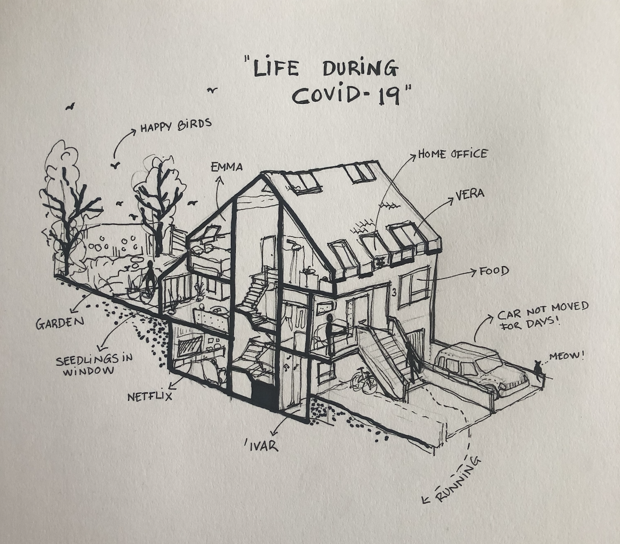 "LIFE DURING
COVID-19"
HAPPY BIRDS
EMMA
HOME OFFICE
VERA
FOOD
3
CAR NOT MOVED
FOR DAYS!
MEOW!
GARDEN
SEEDLINGS IN
WINDOW
NETFLIX
'IVAR
RUNNING